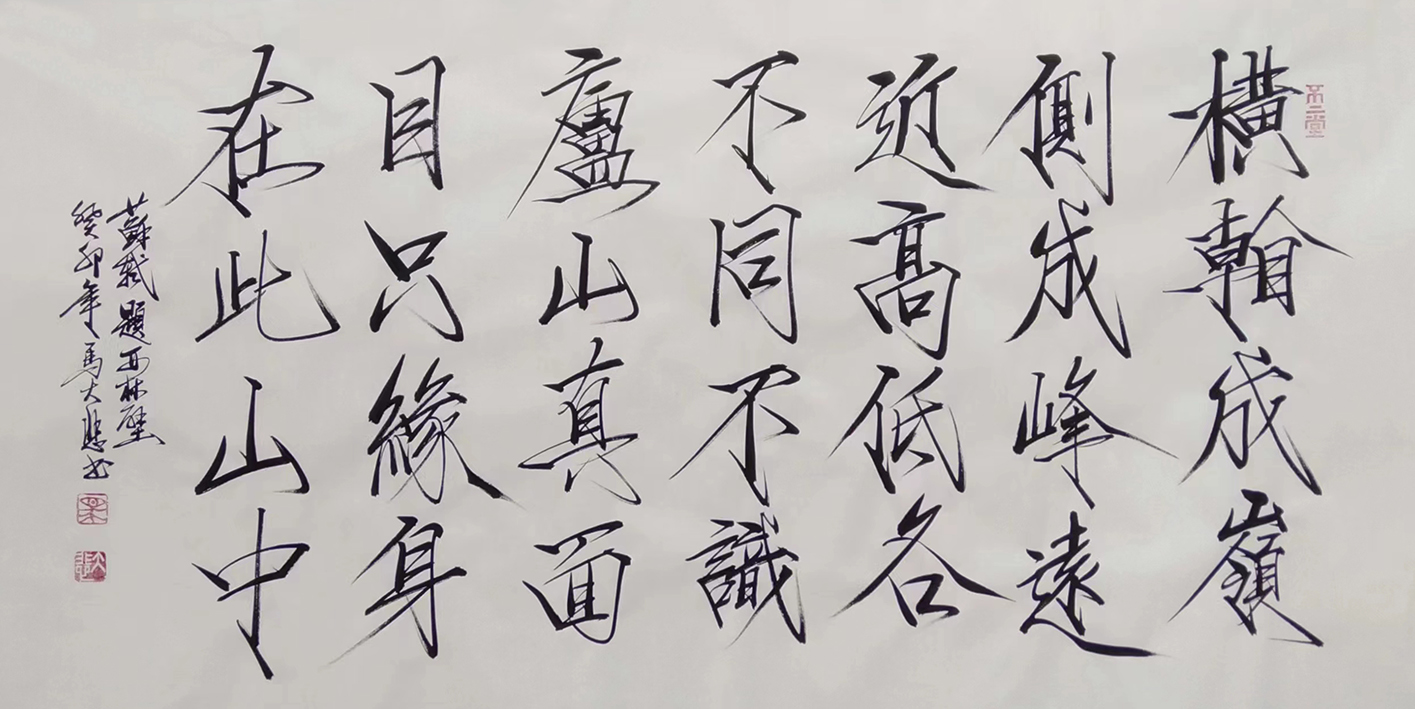 不二堂
橫看成嶺
側成峰遠
近高低各
不同不識
廬山真面
目只緣身
在此山中
蘇軾題西林壁
癸卯年馬大悲书